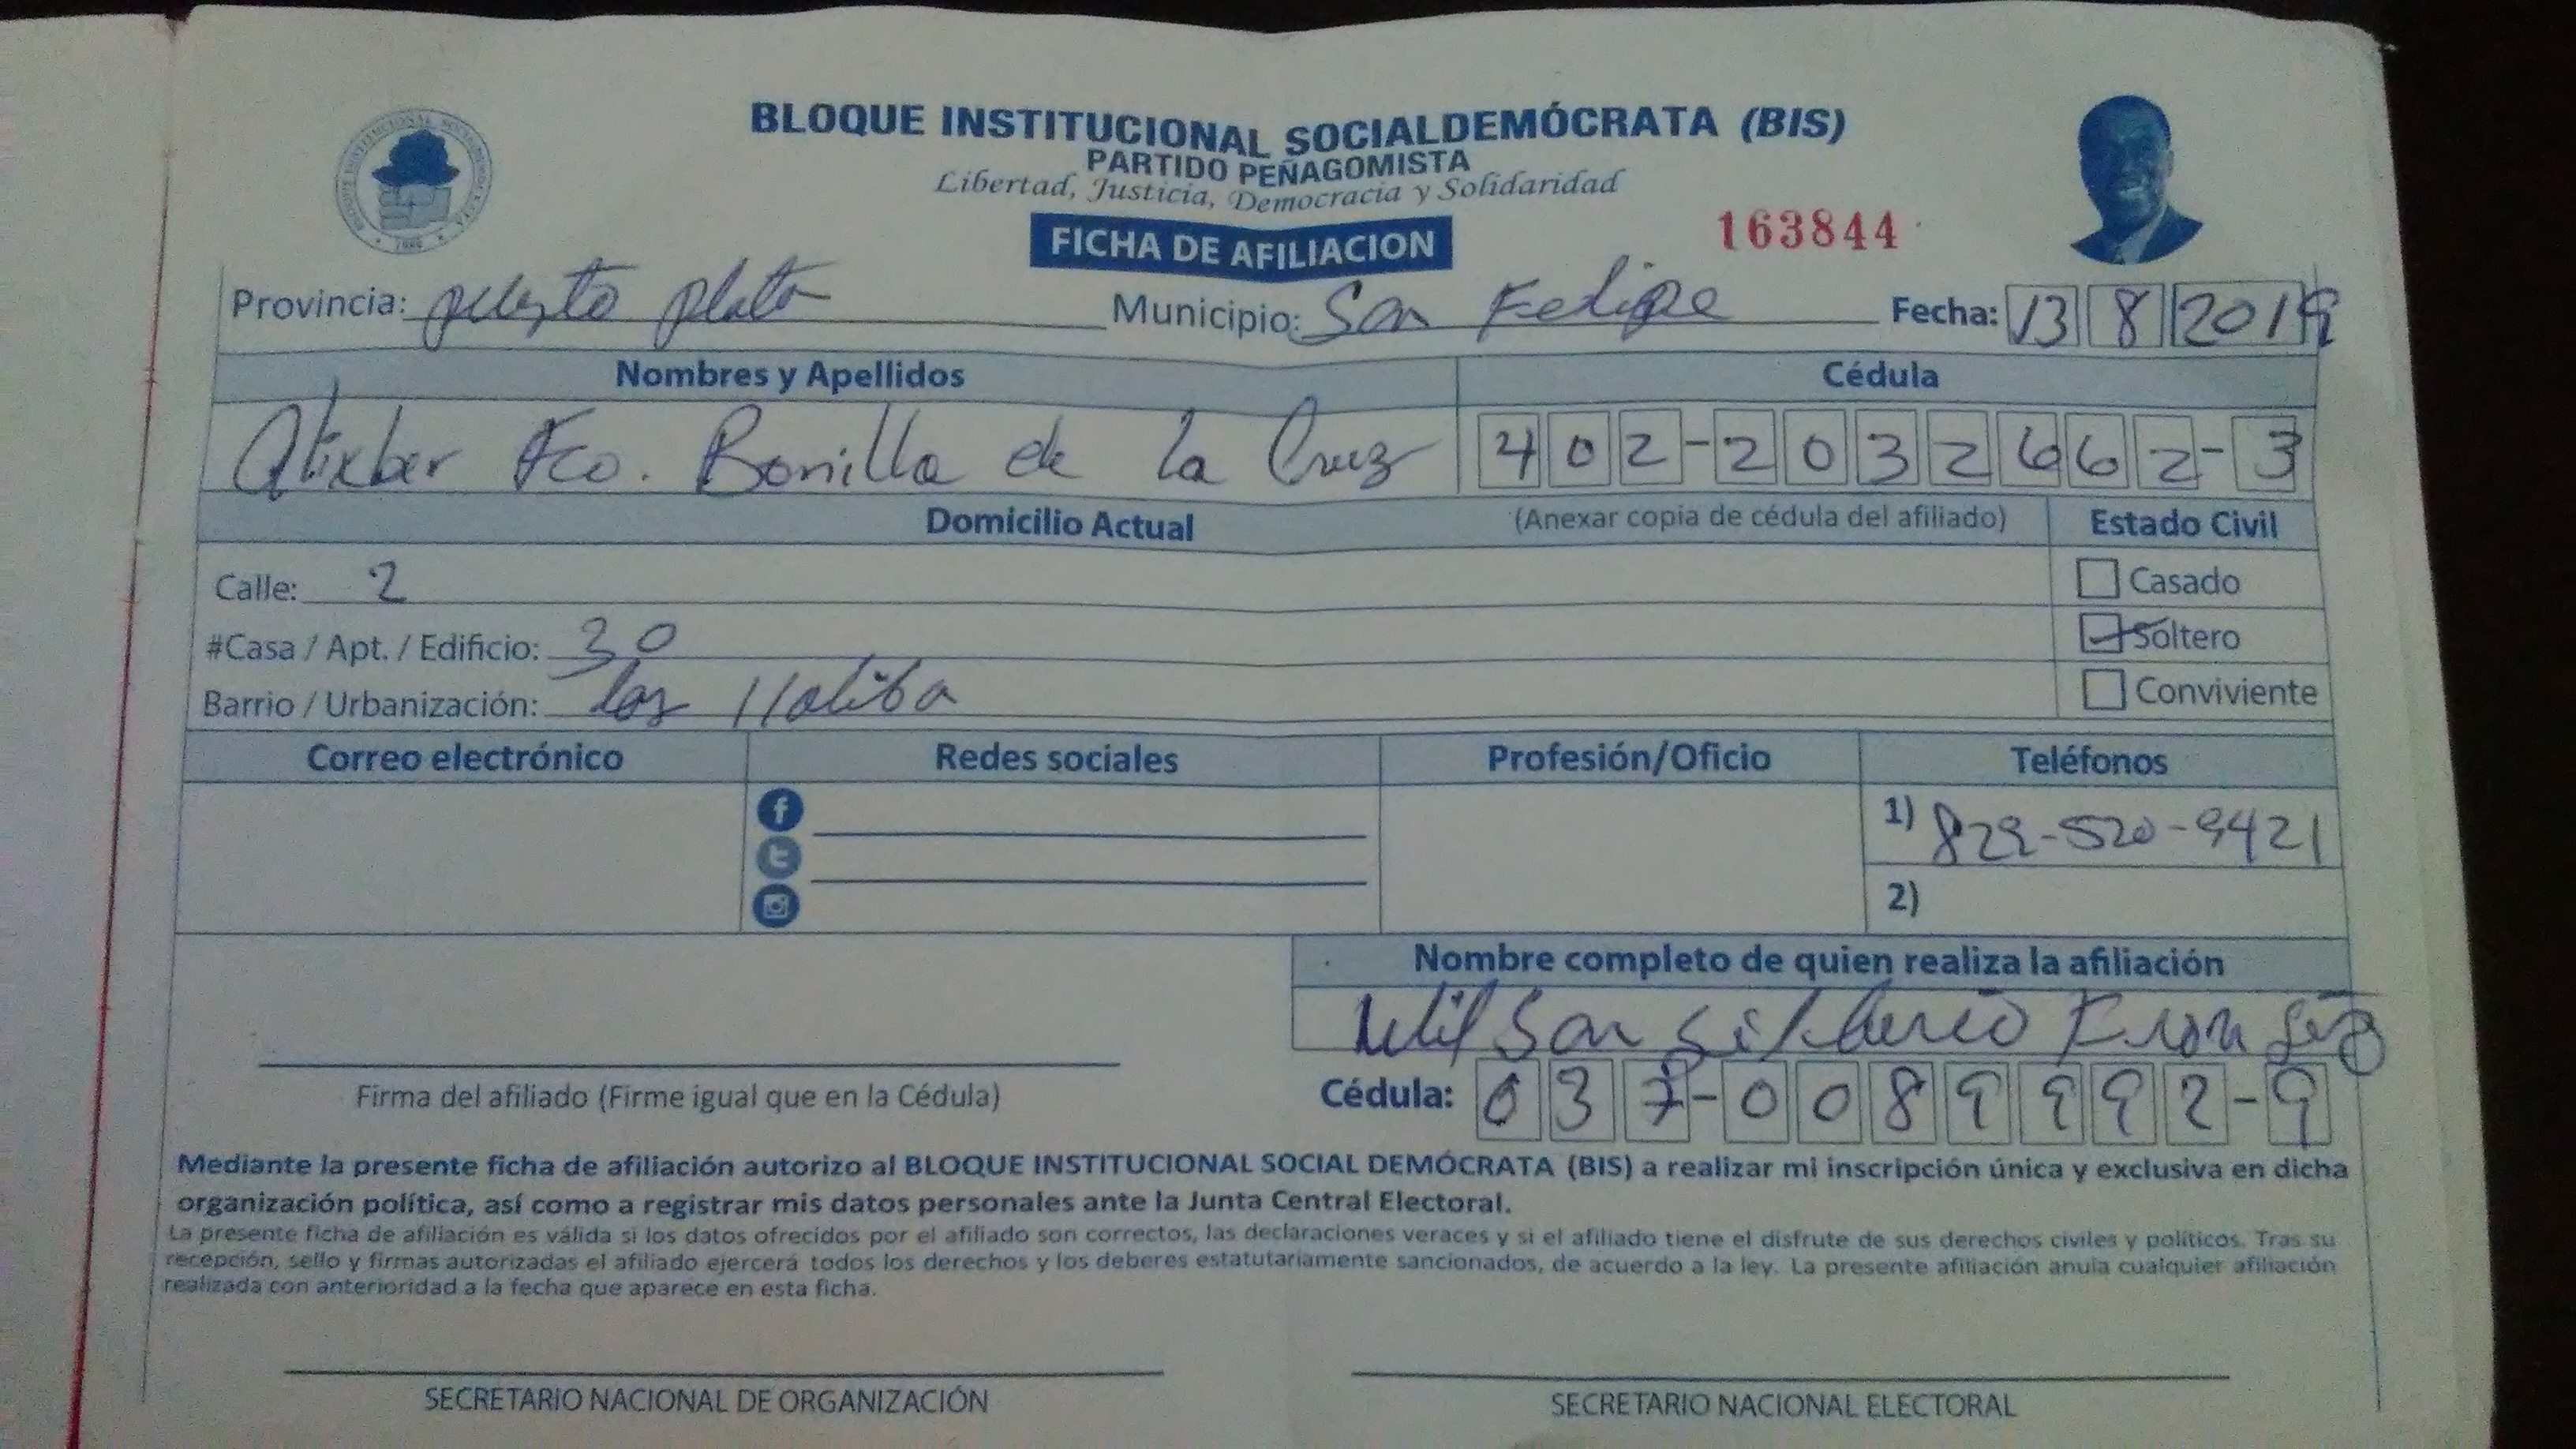 BLOQUE INSTITUCIONAL SOCIALDEMÓCRATA (BIS)
PARTIDO PEÑAGOMISTA
Libertad, Justicia, Democracia y Solidaridad
FICHA DE AFILIACION
163844
Provincia: puerto plata Municipio: San Felipe Fecha: 13 8 2019
Nombres y Apellidos Cédula
Fco. Bonilla de la Cruz 402-2032662-3
Domicilio Actual (Anexar copia de cédula del afiliado) Estado Civil
Calle: 2
Casado
#Casa / Apt. / Edificio: 30
Soltero
Barrio / Urbanización: los
Conviviente
Correo electrónico Redes sociales Profesión/Oficio Teléfonos
1) 829-520-9421
2)
Nombre completo de quien realiza la afiliación
Wilson Silverio
Firma del afiliado (Firme igual que en la Cédula)
Cédula: 037-0089992-9
Mediante la presente ficha de afiliación autorizo al BLOQUE INSTITUCIONAL SOCIAL DEMÓCRATA (BIS) a realizar mi inscripción única y exclusiva en dicha
organización política, así como a registrar mis datos personales ante la Junta Central Electoral.
La presente ficha de afiliación es válida si los datos ofrecidos por el afiliado son correctos, las declaraciones veraces y si el afiliado tiene el disfrute de sus derechos civiles y políticos. Tras su
recepción, sello y firmas autorizadas el afiliado ejercerá todos los derechos y los deberes estatutariamente sancionados, de acuerdo a la ley. La presente afiliación anula cualquier afiliación
realizada con anterioridad a la fecha que aparece en esta ficha.
SECRETARIO NACIONAL DE ORGANIZACIÓN SECRETARIO NACIONAL ELECTORAL